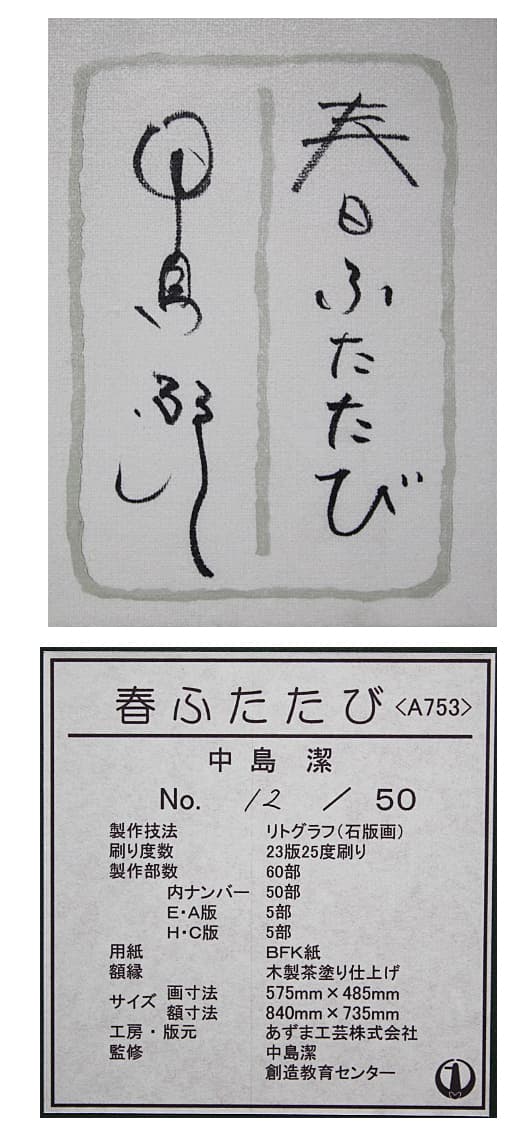 春ふたたび
中島潔
春ふたたび <A753>
中島 潔
No. 12 / 50
製作技法 リトグラフ(石版画)
刷り度数 23版25度刷り
製作部数 60部
内ナンバー 50部
E・A版 5部
H・C版 5部
用紙 BFK紙
額縁 木製茶塗り仕上げ
サイズ 画寸法 575mm×485mm
額寸法 840mm×735mm
工房・版元 あずま工芸株式会社
監修 中島潔
創造教育センター